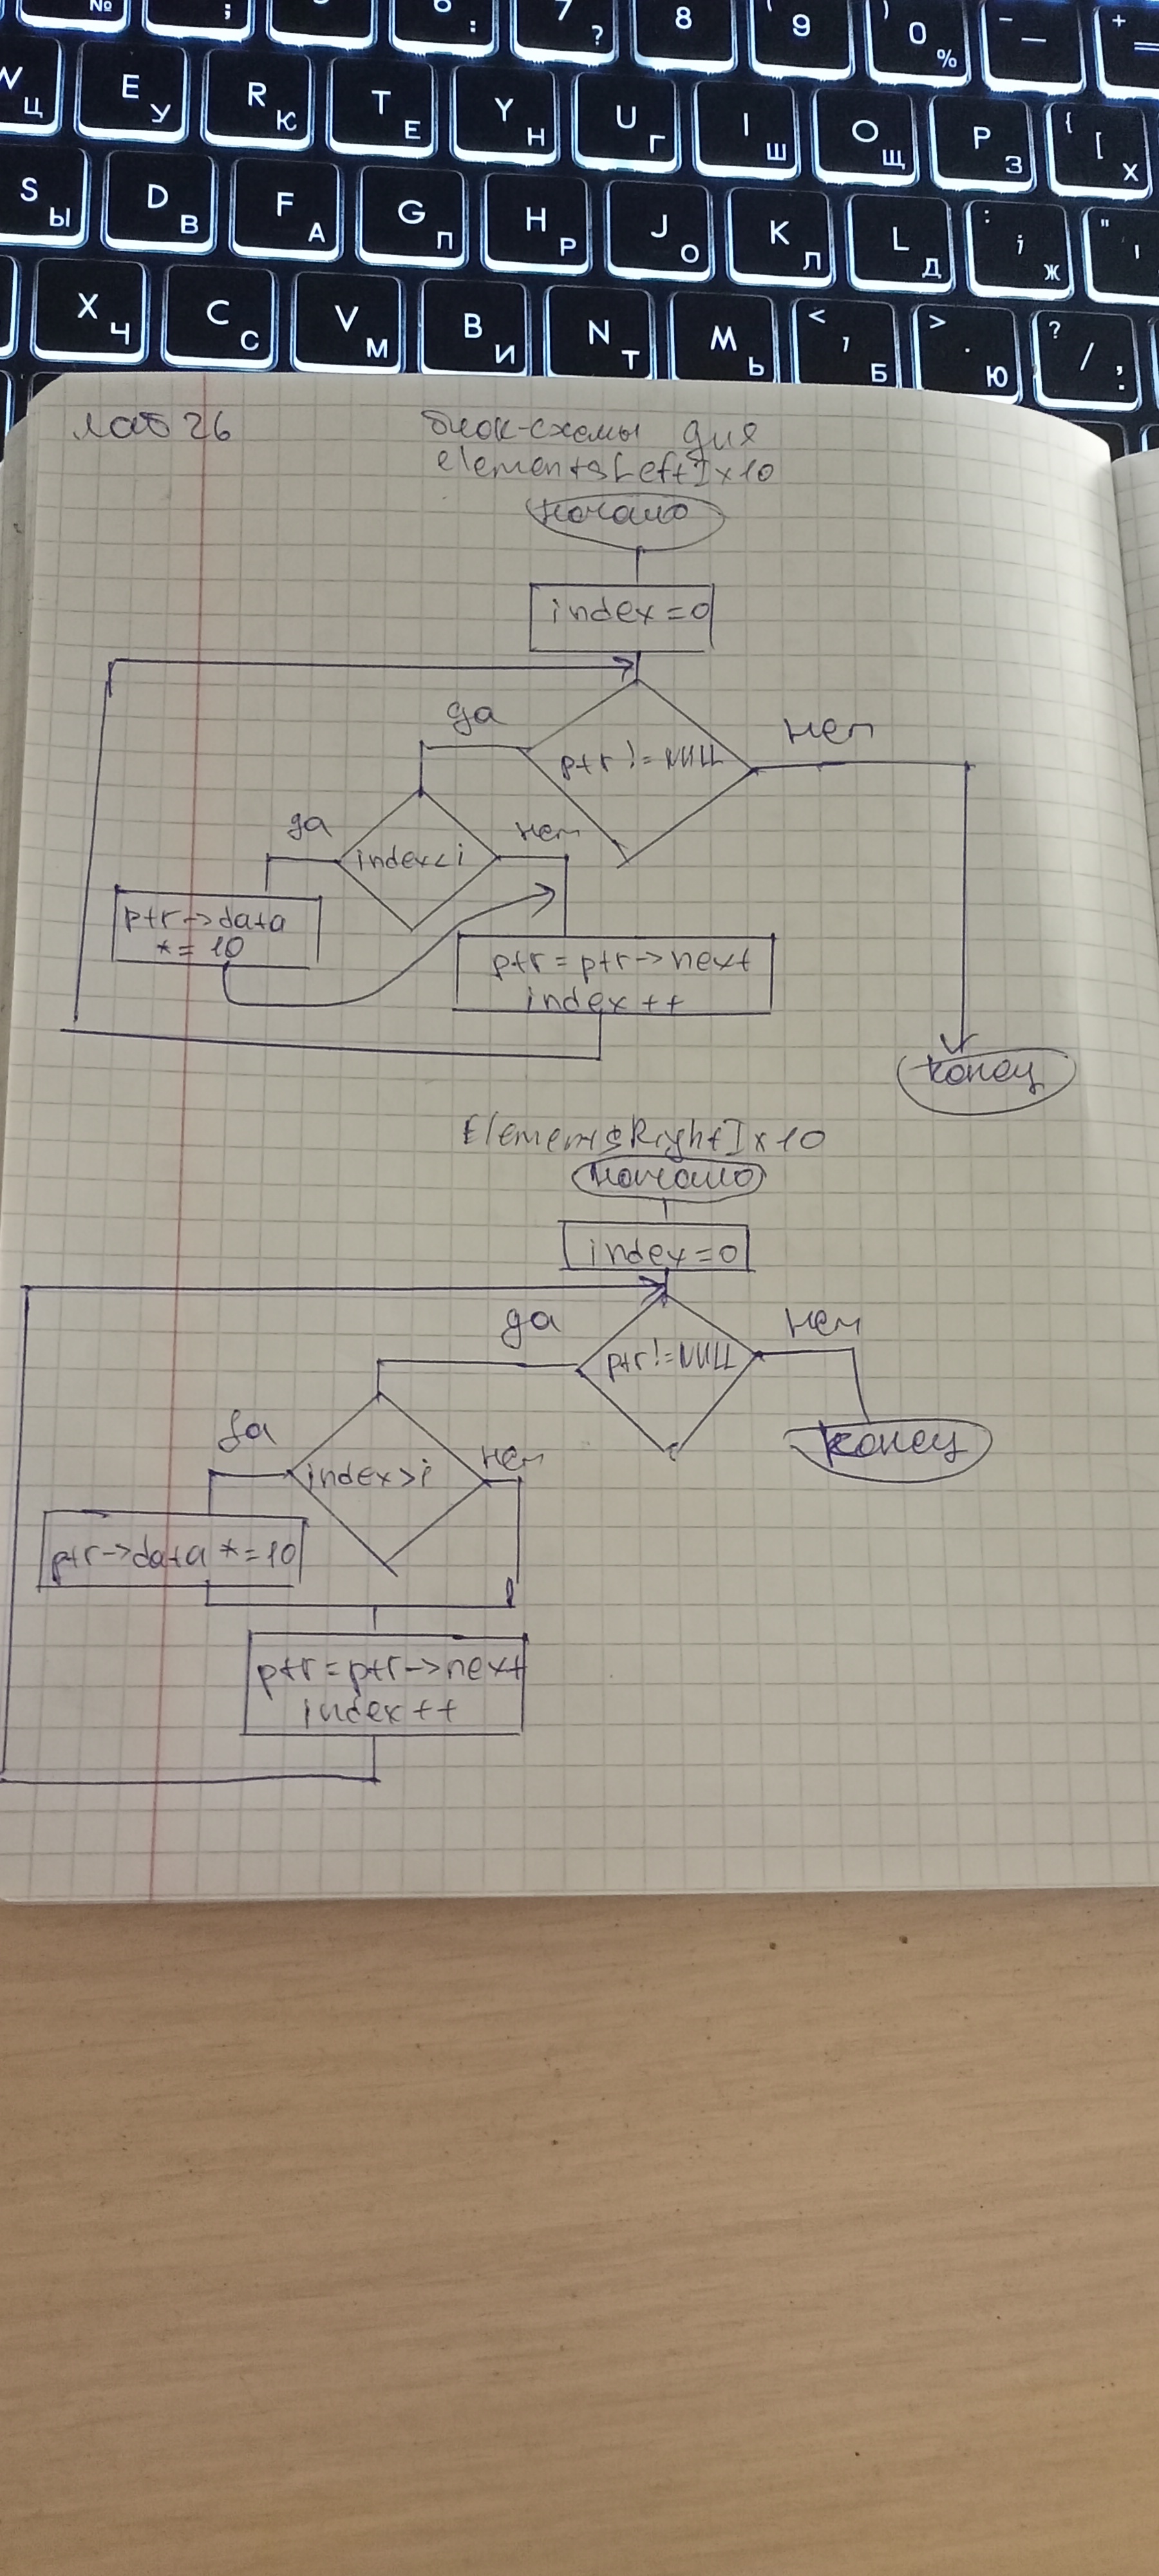 № ; 6 : 7 ? 8 ( 9 ) 0 % — +
Ц E У R К T Е Y Н U Г I Ш O Щ P З { [ Х
S Ы D В F А G П H Р J О K Л L Д : ; Ж "
X Ч C С V М B И N Т M Ь < , Б > . Ю ? /
лаб 26
блок-схемы для
elementsLeftIx10
начало
index=0
да
нет
ptr!=NULL
да
нет
index<i
ptr->data
*=10
ptr=ptr->next
index++
конец
ElementsRightIx10
начало
index=0
да
нет
ptr!=NULL
да
конец
нет
index>i
ptr->data *=10
ptr=ptr->next
index++